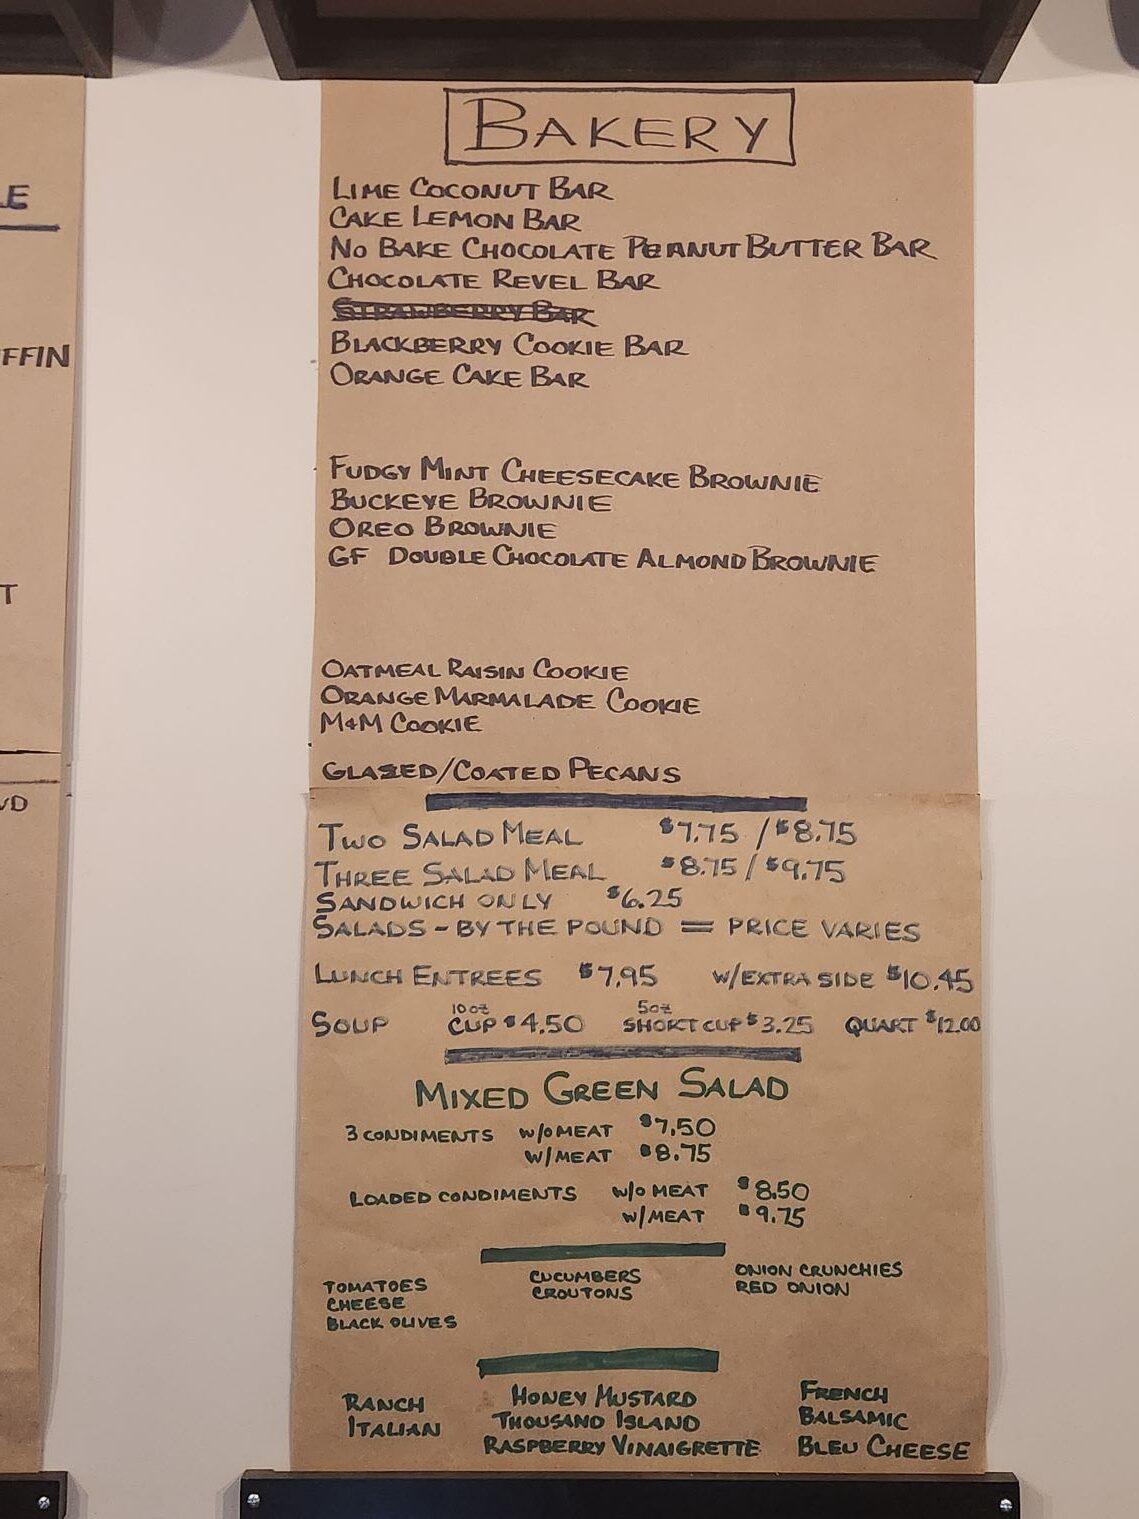 LE
FFIN
T
VD
BAKERY
LIME COCONUT BAR
CAKE LEMON BAR
NO BAKE CHOCOLATE PEANUT BUTTER BAR
CHOCOLATE REVEL BAR
STRAWBERRY BAR
BLACKBERRY COOKIE BAR
ORANGE CAKE BAR
FUDGY MINT CHEESECAKE BROWNIE
BUCKEYE BROWNIE
OREO BROWNIE
GF DOUBLE CHOCOLATE ALMOND BROWNIE
OATMEAL RAISIN COOKIE
ORANGE MARMALADE COOKIE
M&M COOKIE
GLAZED/COATED PECANS
TWO SALAD MEAL $7.75 / $8.75
THREE SALAD MEAL $8.75 / $9.75
SANDWICH ONLY $6.25
SALADS - BY THE POUND = PRICE VARIES
LUNCH ENTREES $7.95 W/EXTRA SIDE $10.45
SOUP 10oz CUP $4.50 5oz SHORT CUP $3.25 QUART $12.00
MIXED GREEN SALAD
3 CONDIMENTS W/O MEAT $7.50
W/MEAT $8.75
LOADED CONDIMENTS W/O MEAT $8.50
W/MEAT $9.75
TOMATOES
CHEESE
BLACK OLIVES
CUCUMBERS
CROUTONS
ONION CRUNCHIES
RED ONION
RANCH
ITALIAN
HONEY MUSTARD
THOUSAND ISLAND
RASPBERRY VINAIGRETTE
FRENCH
BALSAMIC
BLEU CHEESE